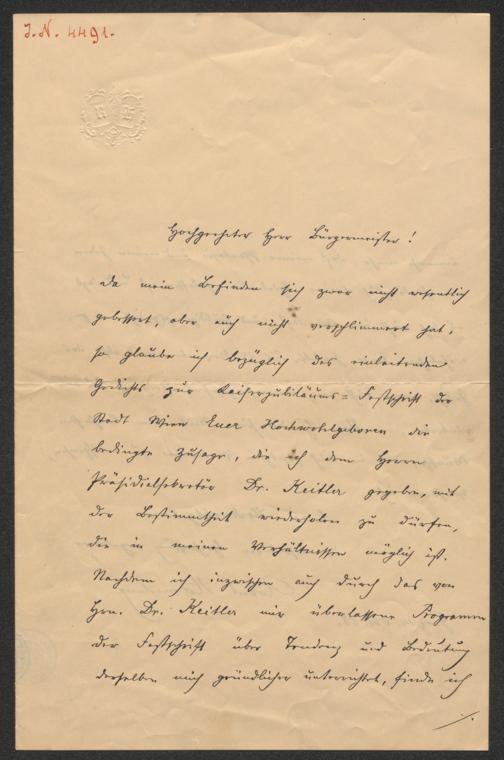 J.N. 4491.
Hochgeehrter Herr Bürgermeister!
Da mein Befinden sich zwar nicht wesentlich
gebessert, aber auch nicht verschlimmert hat,
so glaube ich bezüglich des einleitenden
Gedichts zur Kaiserjubiläums=Festschrift der
Stadt Wien Euer Hochwohlgeboren die
bedingte Zusage, die ich dem Herrn
Präsidialsekretär Dr. Keitler gegeben, mit
der Bestimmtheit wiederholen zu dürfen,
die in meinen Verhältnissen möglich ist.
Nachdem ich inzwischen auch durch das von
Hrn. Dr. Keitler mir überlassene Programm
der Festschrift über Tendenz und Bedeutung
derselben mich gründlicher unterrichtet, finde ich
./.